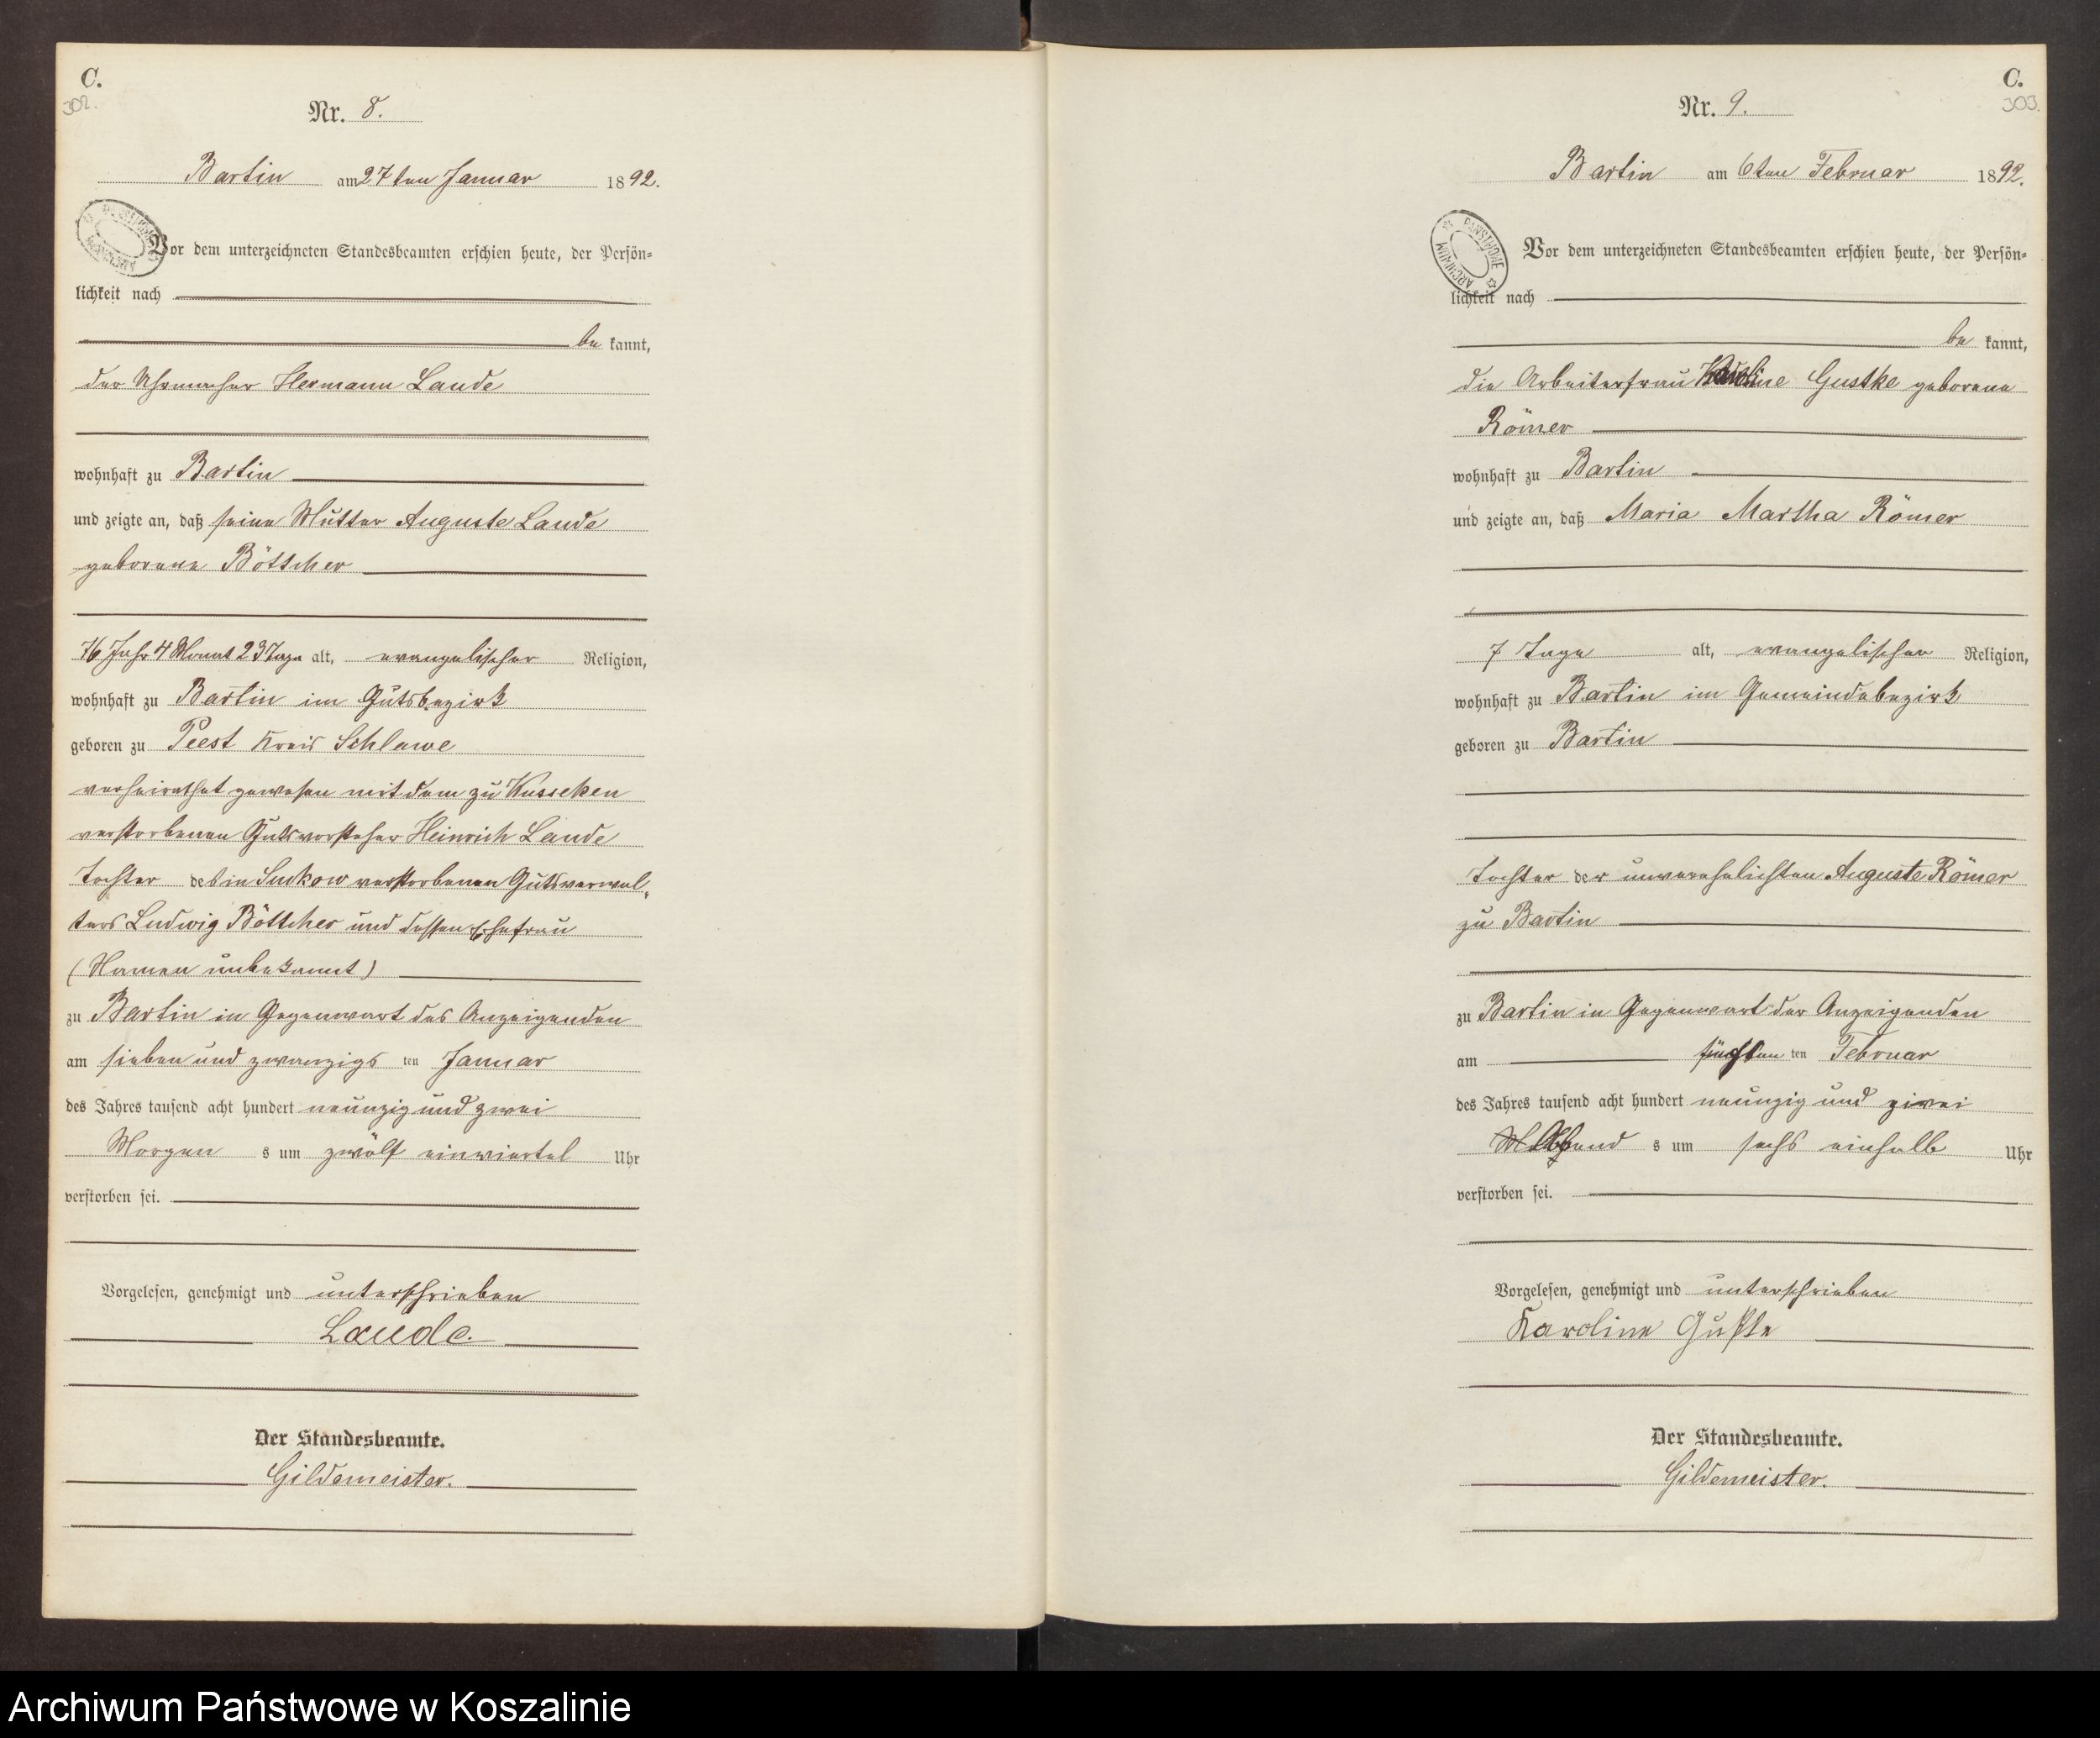 C.
302.
Nr. 8.
Bartin am 27ten Januar 1892.
Vor dem unterzeichneten Standesbeamten erschien heute, der Persön-
lichkeit nach
be kannt,
der Uhrmacher Hermann Laude
wohnhaft zu Bartin
und zeigte an, daß seine Mutter Auguste Laude
geborene Böttcher
76 Jahr 4 Monat 23 Tage alt, evangelischer Religion,
wohnhaft zu Bartin im Gutsbezirk
geboren zu Peest Kreis Schlawe
verheirathet gewesen mit dem zu Kusseken
verstorbenen Gutsvorsteher Heinrich Laude
Tochter des in Suckow verstorbenen Gutsverwal-
ters Ludwig Böttcher und dessen Ehefrau
(Namen unbekannt)
zu Bartin in Gegenwart des Anzeigenden
am sieben und zwanzigs ten Januar
des Jahres tausend acht hundert neunzig und zwei
Morgen s um zwölf einviertel Uhr
verstorben sei.
Vorgelesen, genehmigt und unterschrieben
Laude.
Der Standesbeamte.
Gildemeister.
C.
303.
Nr. 9.
Bartin am 6ten Februar 1892.
PAŃSTWOWE ARCHIWUM
Vor dem unterzeichneten Standesbeamten erschien heute, der Persön-
lichkeit nach
be kannt,
die Arbeiterfrau Karoline Gustke geborene
Römer
wohnhaft zu Bartin
und zeigte an, daß Maria Martha Römer
7 Tage alt, evangelischer Religion,
wohnhaft zu Bartin im Gemeindebezirk
geboren zu Bartin
Tochter der unverehelichten Auguste Römer
zu Bartin
zu Bartin in Gegenwart der Anzeigenden
am fünften ten Februar
des Jahres tausend acht hundert neunzig und zwei
Abend s um sechs einhalb Uhr
verstorben sei.
Vorgelesen, genehmigt und unterschrieben
Karoline Gustke
Der Standesbeamte.
Gildemeister.
Archiwum Państwowe w Koszalinie